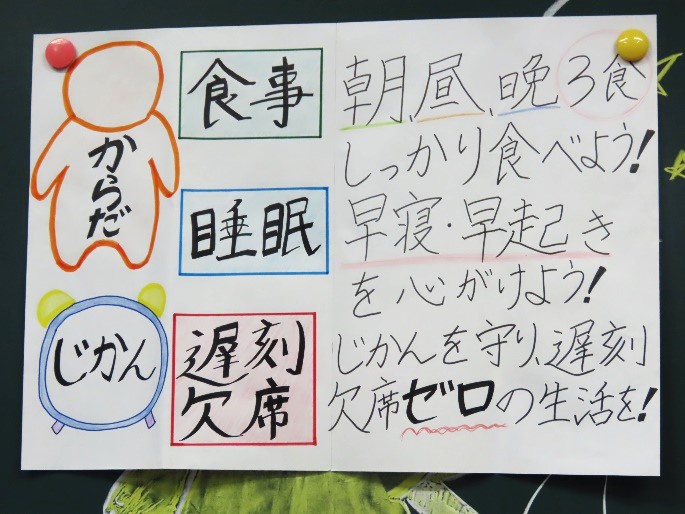 からだ
食事
朝、昼、晩3食
しっかり食べよう!
睡眠
早寝・早起き
を心がけよう!
じかん
遅刻
欠席
じかんを守り、遅刻
欠席ゼロの生活を!